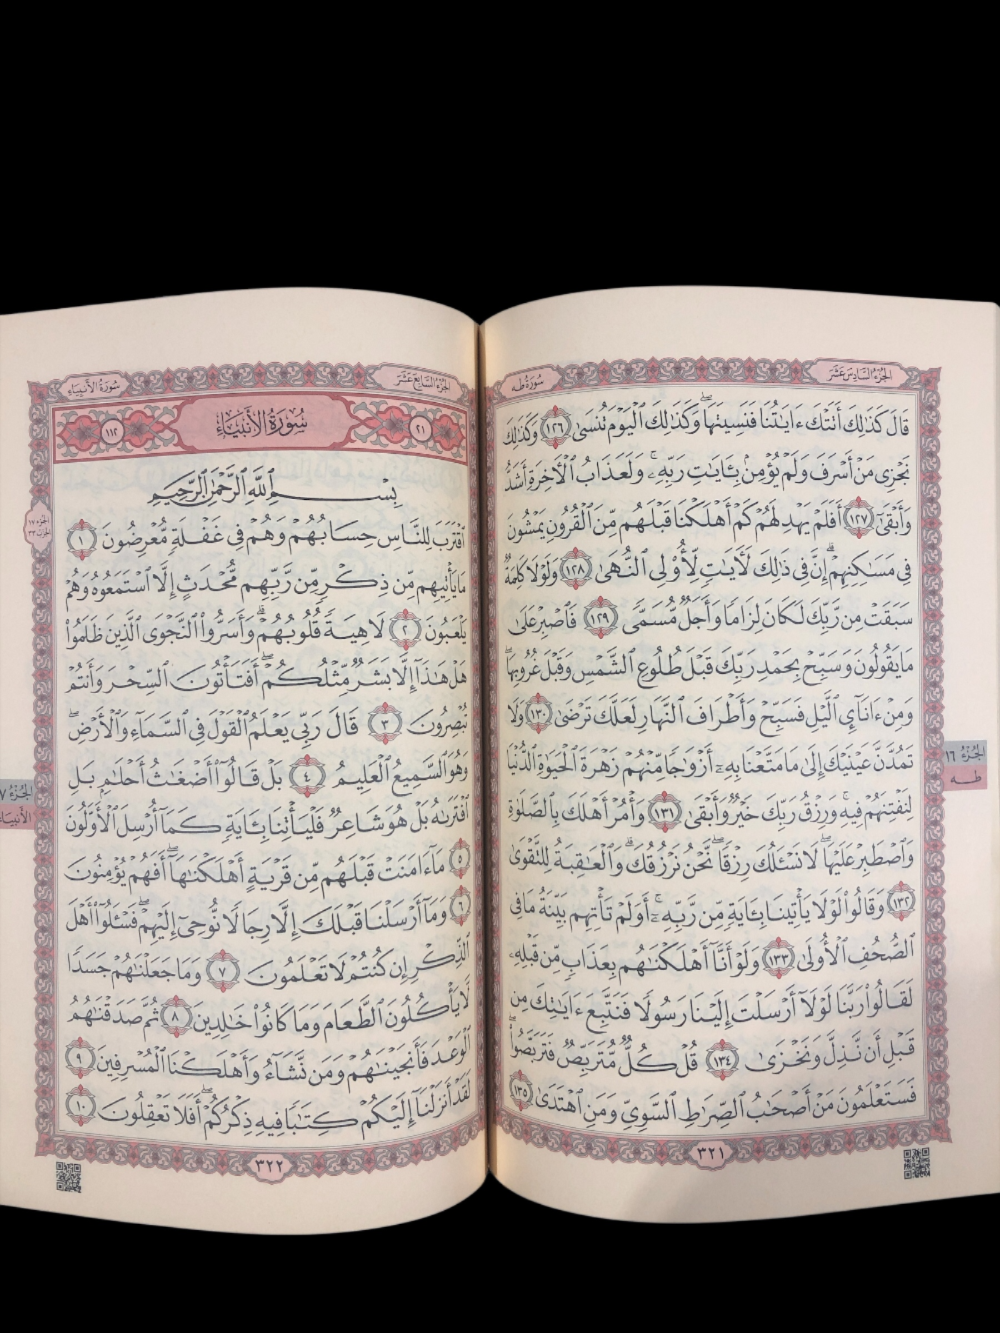 الجزء السادس عشر
سورة طه
قَالَ كَذَٰلِكَ أَتَتْكَ ءَايَٰتُنَا فَنَسِيتَهَا ۖ وَكَذَٰلِكَ ٱلْيَوْمَ تُنسَىٰ ١٢٦ وَكَذَٰلِكَ
نَجْزِى مَنْ أَسْرَفَ وَلَمْ يُؤْمِنۢ بِـَٔايَٰتِ رَبِّهِۦ ۚ وَلَعَذَابُ ٱلْـَٔاخِرَةِ أَشَدُّ
وَأَبْقَىٰٓ ١٢٧ أَفَلَمْ يَهْدِ لَهُمْ كَمْ أَهْلَكْنَا قَبْلَهُم مِّنَ ٱلْقُرُونِ يَمْشُونَ
فِى مَسَٰكِنِهِمْ ۗ إِنَّ فِى ذَٰلِكَ لَـَٔايَٰتٍ لِّأُو۟لِى ٱلنُّهَىٰ ١٢٨ وَلَوْلَا كَلِمَةٌ
سَبَقَتْ مِن رَّبِّكَ لَكَانَ لِزَامًا وَأَجَلٌ مُّسَمًّى ١٢٩ فَٱصْبِرْ عَلَىٰ
مَا يَقُولُونَ وَسَبِّحْ بِحَمْدِ رَبِّكَ قَبْلَ طُلُوعِ ٱلشَّمْسِ وَقَبْلَ غُرُوبِهَا ۖ
وَمِنْ ءَانَآئِ ٱلَّيْلِ فَسَبِّحْ وَأَطْرَافَ ٱلنَّهَارِ لَعَلَّكَ تَرْضَىٰ ١٣٠ وَلَا
تَمُدَّنَّ عَيْنَيْكَ إِلَىٰ مَا مَتَّعْنَا بِهِۦٓ أَزْوَٰجًا مِّنْهُمْ زَهْرَةَ ٱلْحَيَوٰةِ ٱلدُّنْيَا
لِنَفْتِنَهُمْ فِيهِ ۚ وَرِزْقُ رَبِّكَ خَيْرٌ وَأَبْقَىٰ ١٣١ وَأْمُرْ أَهْلَكَ بِٱلصَّلَوٰةِ
وَٱصْطَبِرْ عَلَيْهَا ۖ لَا نَسْـَٔلُكَ رِزْقًا ۖ نَّحْنُ نَرْزُقُكَ ۗ وَٱلْعَٰقِبَةُ لِلتَّقْوَىٰ
١٣٢ وَقَالُوا۟ لَوْلَا يَأْتِينَا بِـَٔايَةٍ مِّن رَّبِّهِۦٓ ۚ أَوَلَمْ تَأْتِهِم بَيِّنَةُ مَا فِى
ٱلصُّحُفِ ٱلْأُولَىٰ ١٣٣ وَلَوْ أَنَّآ أَهْلَكْنَٰهُم بِعَذَابٍ مِّن قَبْلِهِۦ
لَقَالُوا۟ رَبَّنَا لَوْلَآ أَرْسَلْتَ إِلَيْنَا رَسُولًا فَنَتَّبِعَ ءَايَٰتِكَ مِن
قَبْلِ أَن نَّذِلَّ وَنَخْزَىٰ ١٣٤ قُلْ كُلٌّ مُّتَرَبِّصٌ فَتَرَبَّصُوا۟ ۖ
فَسَتَعْلَمُونَ مَنْ أَصْحَٰبُ ٱلصِّرَٰطِ ٱلسَّوِىِّ وَمَنِ ٱهْتَدَىٰ ١٣٥
٣٢١
الجزء ١٦
طه
الجزء السابع عشر
سورة الأنبياء
٢١
سورة الأنبياء
١١٢
بِسْمِ ٱللَّهِ ٱلرَّحْمَٰنِ ٱلرَّحِيمِ
ٱقْتَرَبَ لِلنَّاسِ حِسَابُهُمْ وَهُمْ فِى غَفْلَةٍ مُّعْرِضُونَ ١
مَا يَأْتِيهِم مِّن ذِكْرٍ مِّن رَّبِّهِم مُّحْدَثٍ إِلَّا ٱسْتَمَعُوهُ وَهُمْ
يَلْعَبُونَ ٢ لَاهِيَةً قُلُوبُهُمْ ۗ وَأَسَرُّوا۟ ٱلنَّجْوَى ٱلَّذِينَ ظَلَمُوا۟
هَلْ هَٰذَآ إِلَّا بَشَرٌ مِّثْلُكُمْ ۖ أَفَتَأْتُونَ ٱلسِّحْرَ وَأَنتُمْ
تُبْصِرُونَ ٣ قَالَ رَبِّى يَعْلَمُ ٱلْقَوْلَ فِى ٱلسَّمَآءِ وَٱلْأَرْضِ ۖ
وَهُوَ ٱلسَّمِيعُ ٱلْعَلِيمُ ٤ بَلْ قَالُوٓا۟ أَضْغَٰثُ أَحْلَٰمٍۭ بَلِ
ٱفْتَرَىٰهُ بَلْ هُوَ شَاعِرٌ فَلْيَأْتِنَا بِـَٔايَةٍ كَمَآ أُرْسِلَ ٱلْأَوَّلُونَ
٥ مَآ ءَامَنَتْ قَبْلَهُم مِّن قَرْيَةٍ أَهْلَكْنَٰهَآ ۖ أَفَهُمْ يُؤْمِنُونَ
٦ وَمَآ أَرْسَلْنَا قَبْلَكَ إِلَّا رِجَالًا نُّوحِىٓ إِلَيْهِمْ ۖ فَسْـَٔلُوٓا۟ أَهْلَ
ٱلذِّكْرِ إِن كُنتُمْ لَا تَعْلَمُونَ ٧ وَمَا جَعَلْنَٰهُمْ جَسَدًا
لَّا يَأْكُلُونَ ٱلطَّعَامَ وَمَا كَانُوا۟ خَٰلِدِينَ ٨ ثُمَّ صَدَقْنَٰهُمُ
ٱلْوَعْدَ فَأَنجَيْنَٰهُمْ وَمَن نَّشَآءُ وَأَهْلَكْنَا ٱلْمُسْرِفِينَ ٩
لَقَدْ أَنزَلْنَآ إِلَيْكُمْ كِتَٰبًا فِيهِ ذِكْرُكُمْ ۖ أَفَلَا تَعْقِلُونَ ١٠
٣٢٢
الجزء ١٧
الحزب ٣٣
الجزء ٧
الأنبياء